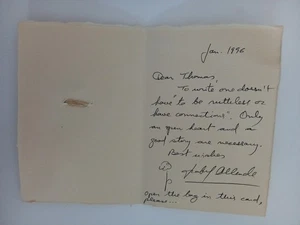 Jan. 1996
Dear Thomas,
To write one doesn't
have to be ruthless or
have "connections". Only
an open heart and a
good story are necessary.
Best wishes
Isabel Allende
open the bag in this card,
please...